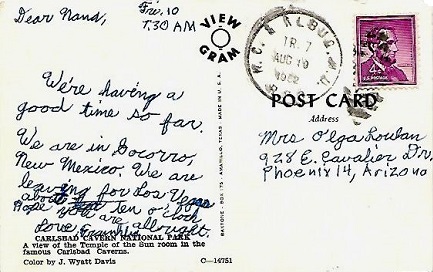 Dear Nana,
Fri. 10
7.30 AM
We're having a
good time so far.
We are in Socorro,
New Mexico. We are
leaving for Los Vegas
about ten o'clock
Hope you are allright.
Love,
CARLSBAD CAVERN NATIONAL PARK
A view of the Temple of the Sun room in the
famous Carlsbad Caverns.
Color by J. Wyatt Davis
C—14751
VIEW
GRAM
BAXTONE - BOX 175 - AMARILLO, TEXAS MADE IN U.S.A.
TR. 7
AUG 10
R.P.O.
4¢
U.S. POSTAGE
POST CARD
Address
Mrs Olga Loulan
928 E. Cavalier Dr.
Phoenix 14, Arizona